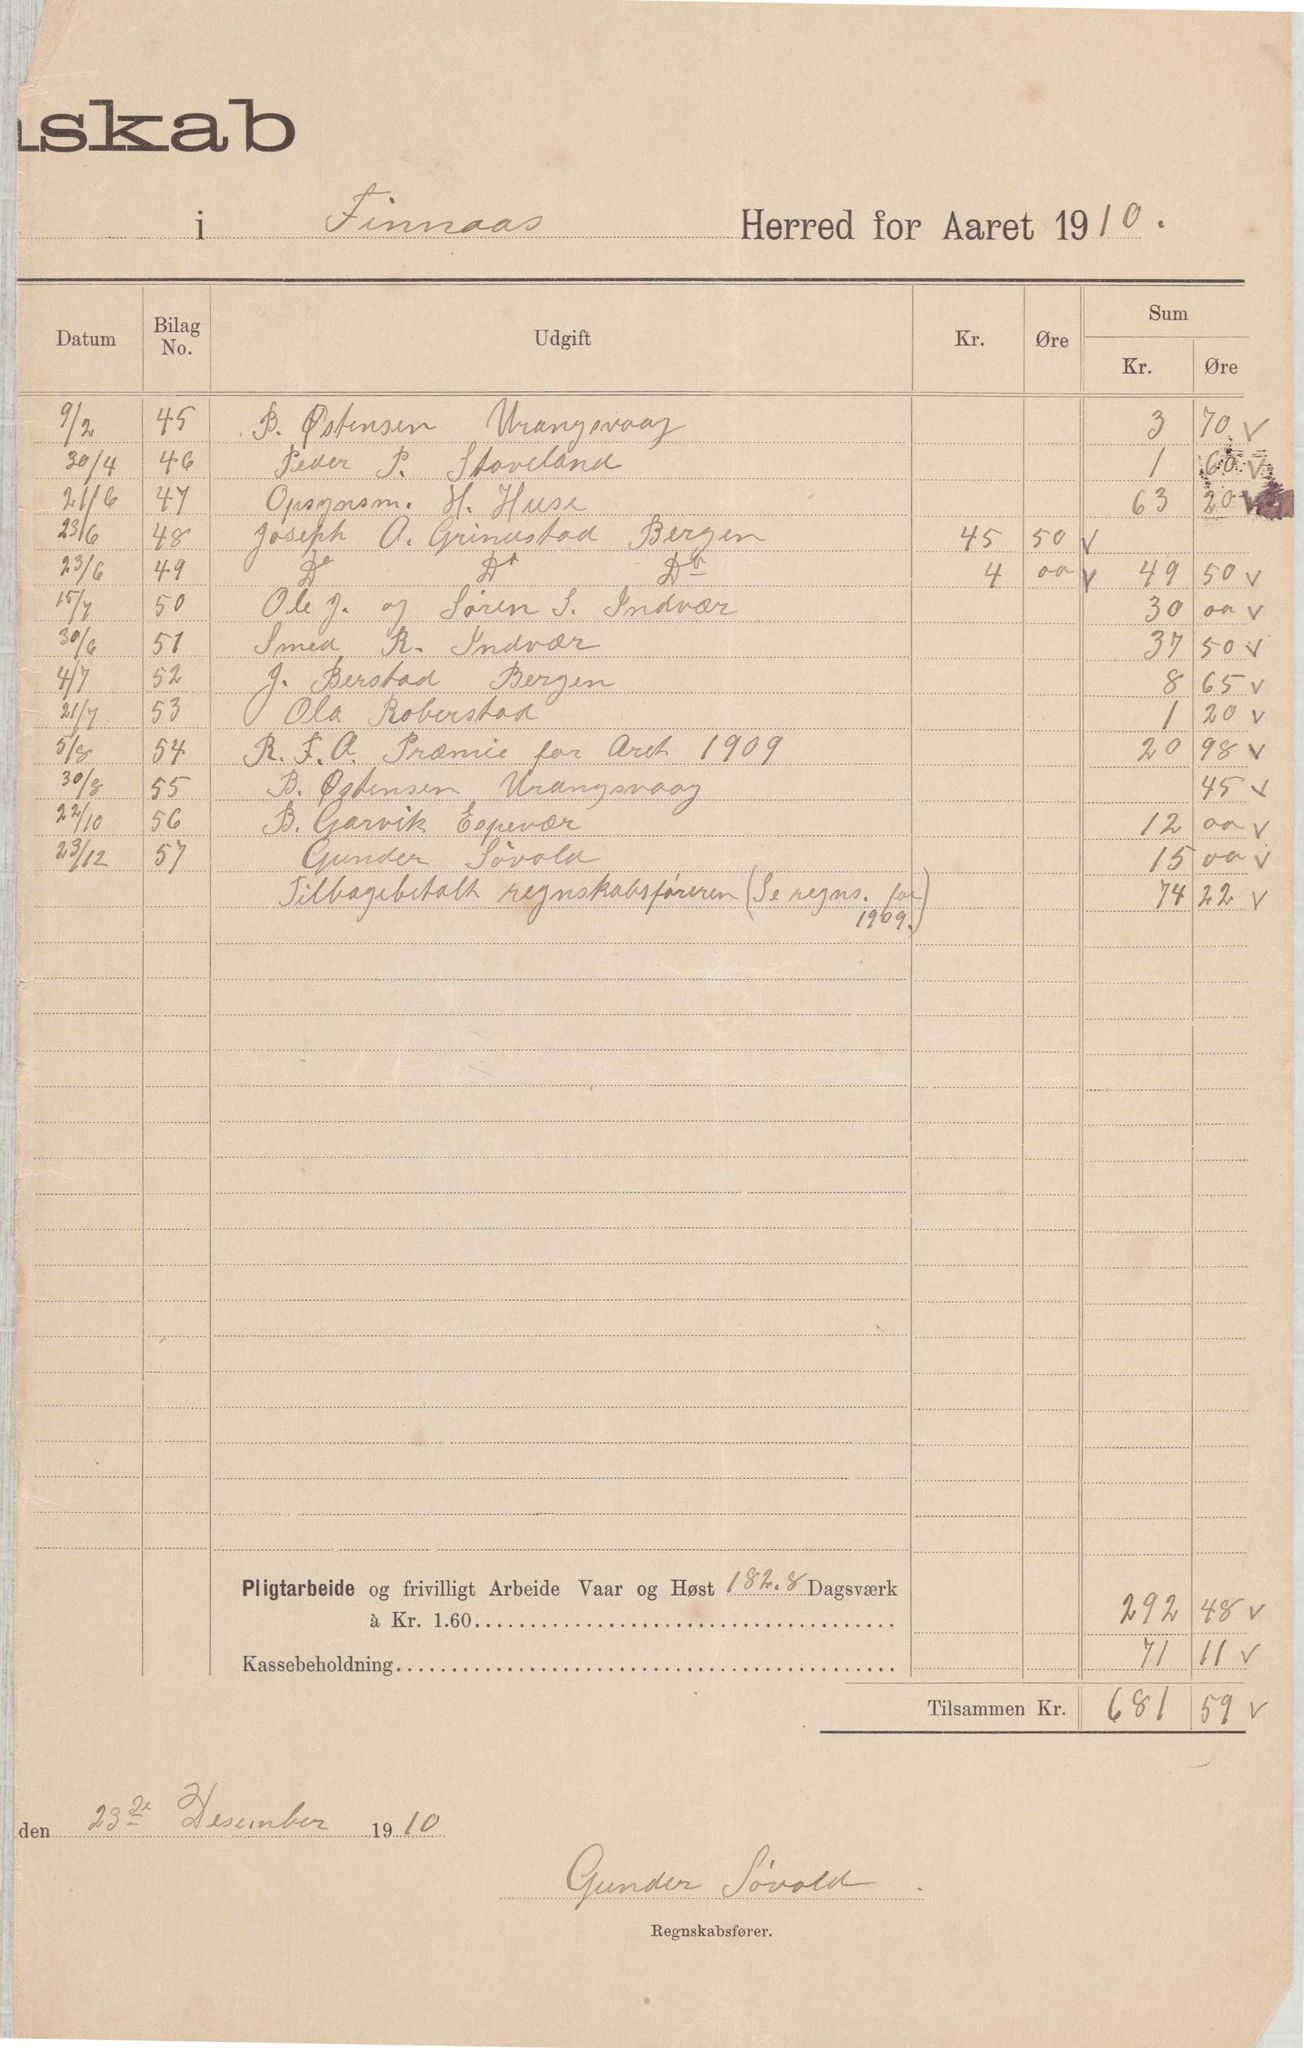 nskab
i Finnaas Herred for Aaret 1910.
Datum Bilag No. Udgift Kr. Øre Sum Kr. Øre
9/2 45 B. Østensen Vrangsvaag 3 70 v
30/4 46 Peder P. Stoveland 1 60 v
21/6 47 Opsynsm. H. Huse 63 20 v
23/6 48 Joseph A. Grindstad Bergen 45 50 v
23/6 49 Do Do Do 4 00 v 49 50 v
15/7 50 Ole J. og Søren S. Indvær 30 00 v
30/6 51 Smed R. Indvær 37 50 v
4/7 52 J. Berstad Bergen 8 65 v
21/7 53 Ola Roberstad 1 20 v
5/8 54 R. F. A. Præmie for Aret 1909 20 98 v
30/8 55 B. Østensen Vrangsvaag 45 v
22/10 56 B. Garvik Espevær 12 00 v
23/12 57 Gunder Søvold 15 00 v
Tilbagebetalt regnskabsføreren (Se regns. for 74 22 v
1909.)
Pligtarbeide og frivilligt Arbeide Vaar og Høst 182.8 Dagsværk
à Kr. 1.60 292 48 v
Kassebeholdning 71 11 v
Tilsammen Kr. 681 59 v
den 23de Desember 1910
Gunder Søvold.
Regnskabsfører.